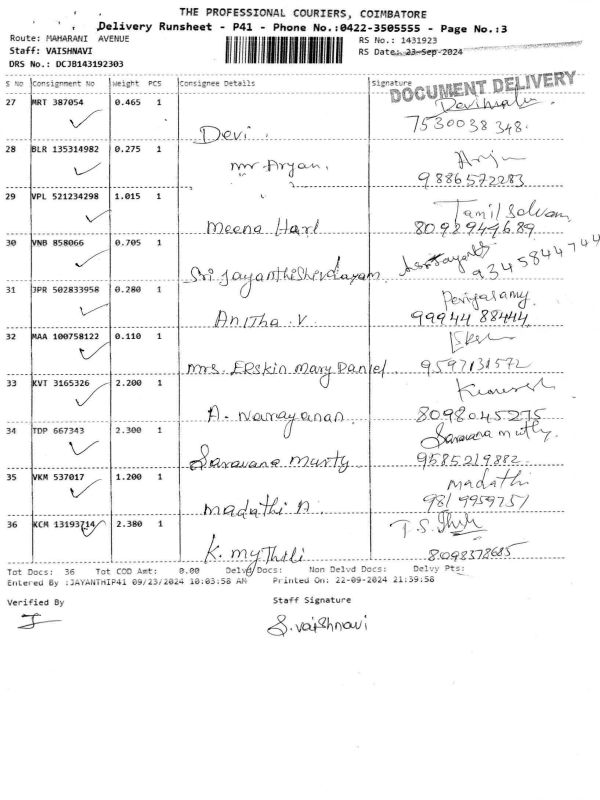 THE PROFESSIONAL COURIERS, COIMBATORE
Delivery Runsheet - P41 - Phone No.:0422-3505555 - Page No.:3
Route: MAHARANI AVENUE RS No.: 1431923
Staff: VAISHNAVI RS Date: 23-Sep-2024
DRS No.: DCJB143192303
S No Consignment No Weight PCS Consignee Details Signature
DOCUMENT DELIVERY
27 MRT 387054 0.465 1
Devi. 7530038348.
28 BLR 135314982 0.275 1
mr Aryan. 9886572283
29 VPL 521234298 1.015 1 Tamil Selvam
Meena Hari 8092949689
30 VNB 858066 0.705 1
Sri Jayanthishevdayam 9345844744
31 JPR 502833958 0.280 1 Periyasamy
Anitha.V 99944 88444
32 MAA 100758122 0.110 1
mrs. ERskin Mary Daniel 9597131572
33 KVT 3165326 2.200 1
A. Narayanan 8098045275
34 TDP 667343 2.300 1 Saravana murthy.
Saravana Murty 9585219882
35 VKM 537017 1.200 1 madathi
madathi A 9819959751
36 KCM 13193714 2.380 1 T.S.
K. myTheli 8098378685
Tot Docs: 36 Tot COD Amt: 0.00 Delvd Docs: Non Delvd Docs: Delvy Pts:
Entered By :JAYANTHIP41 09/23/2024 10:03:58 AM Printed On: 22-09-2024 21:39:58
Verified By Staff Signature
S.vaishnavi